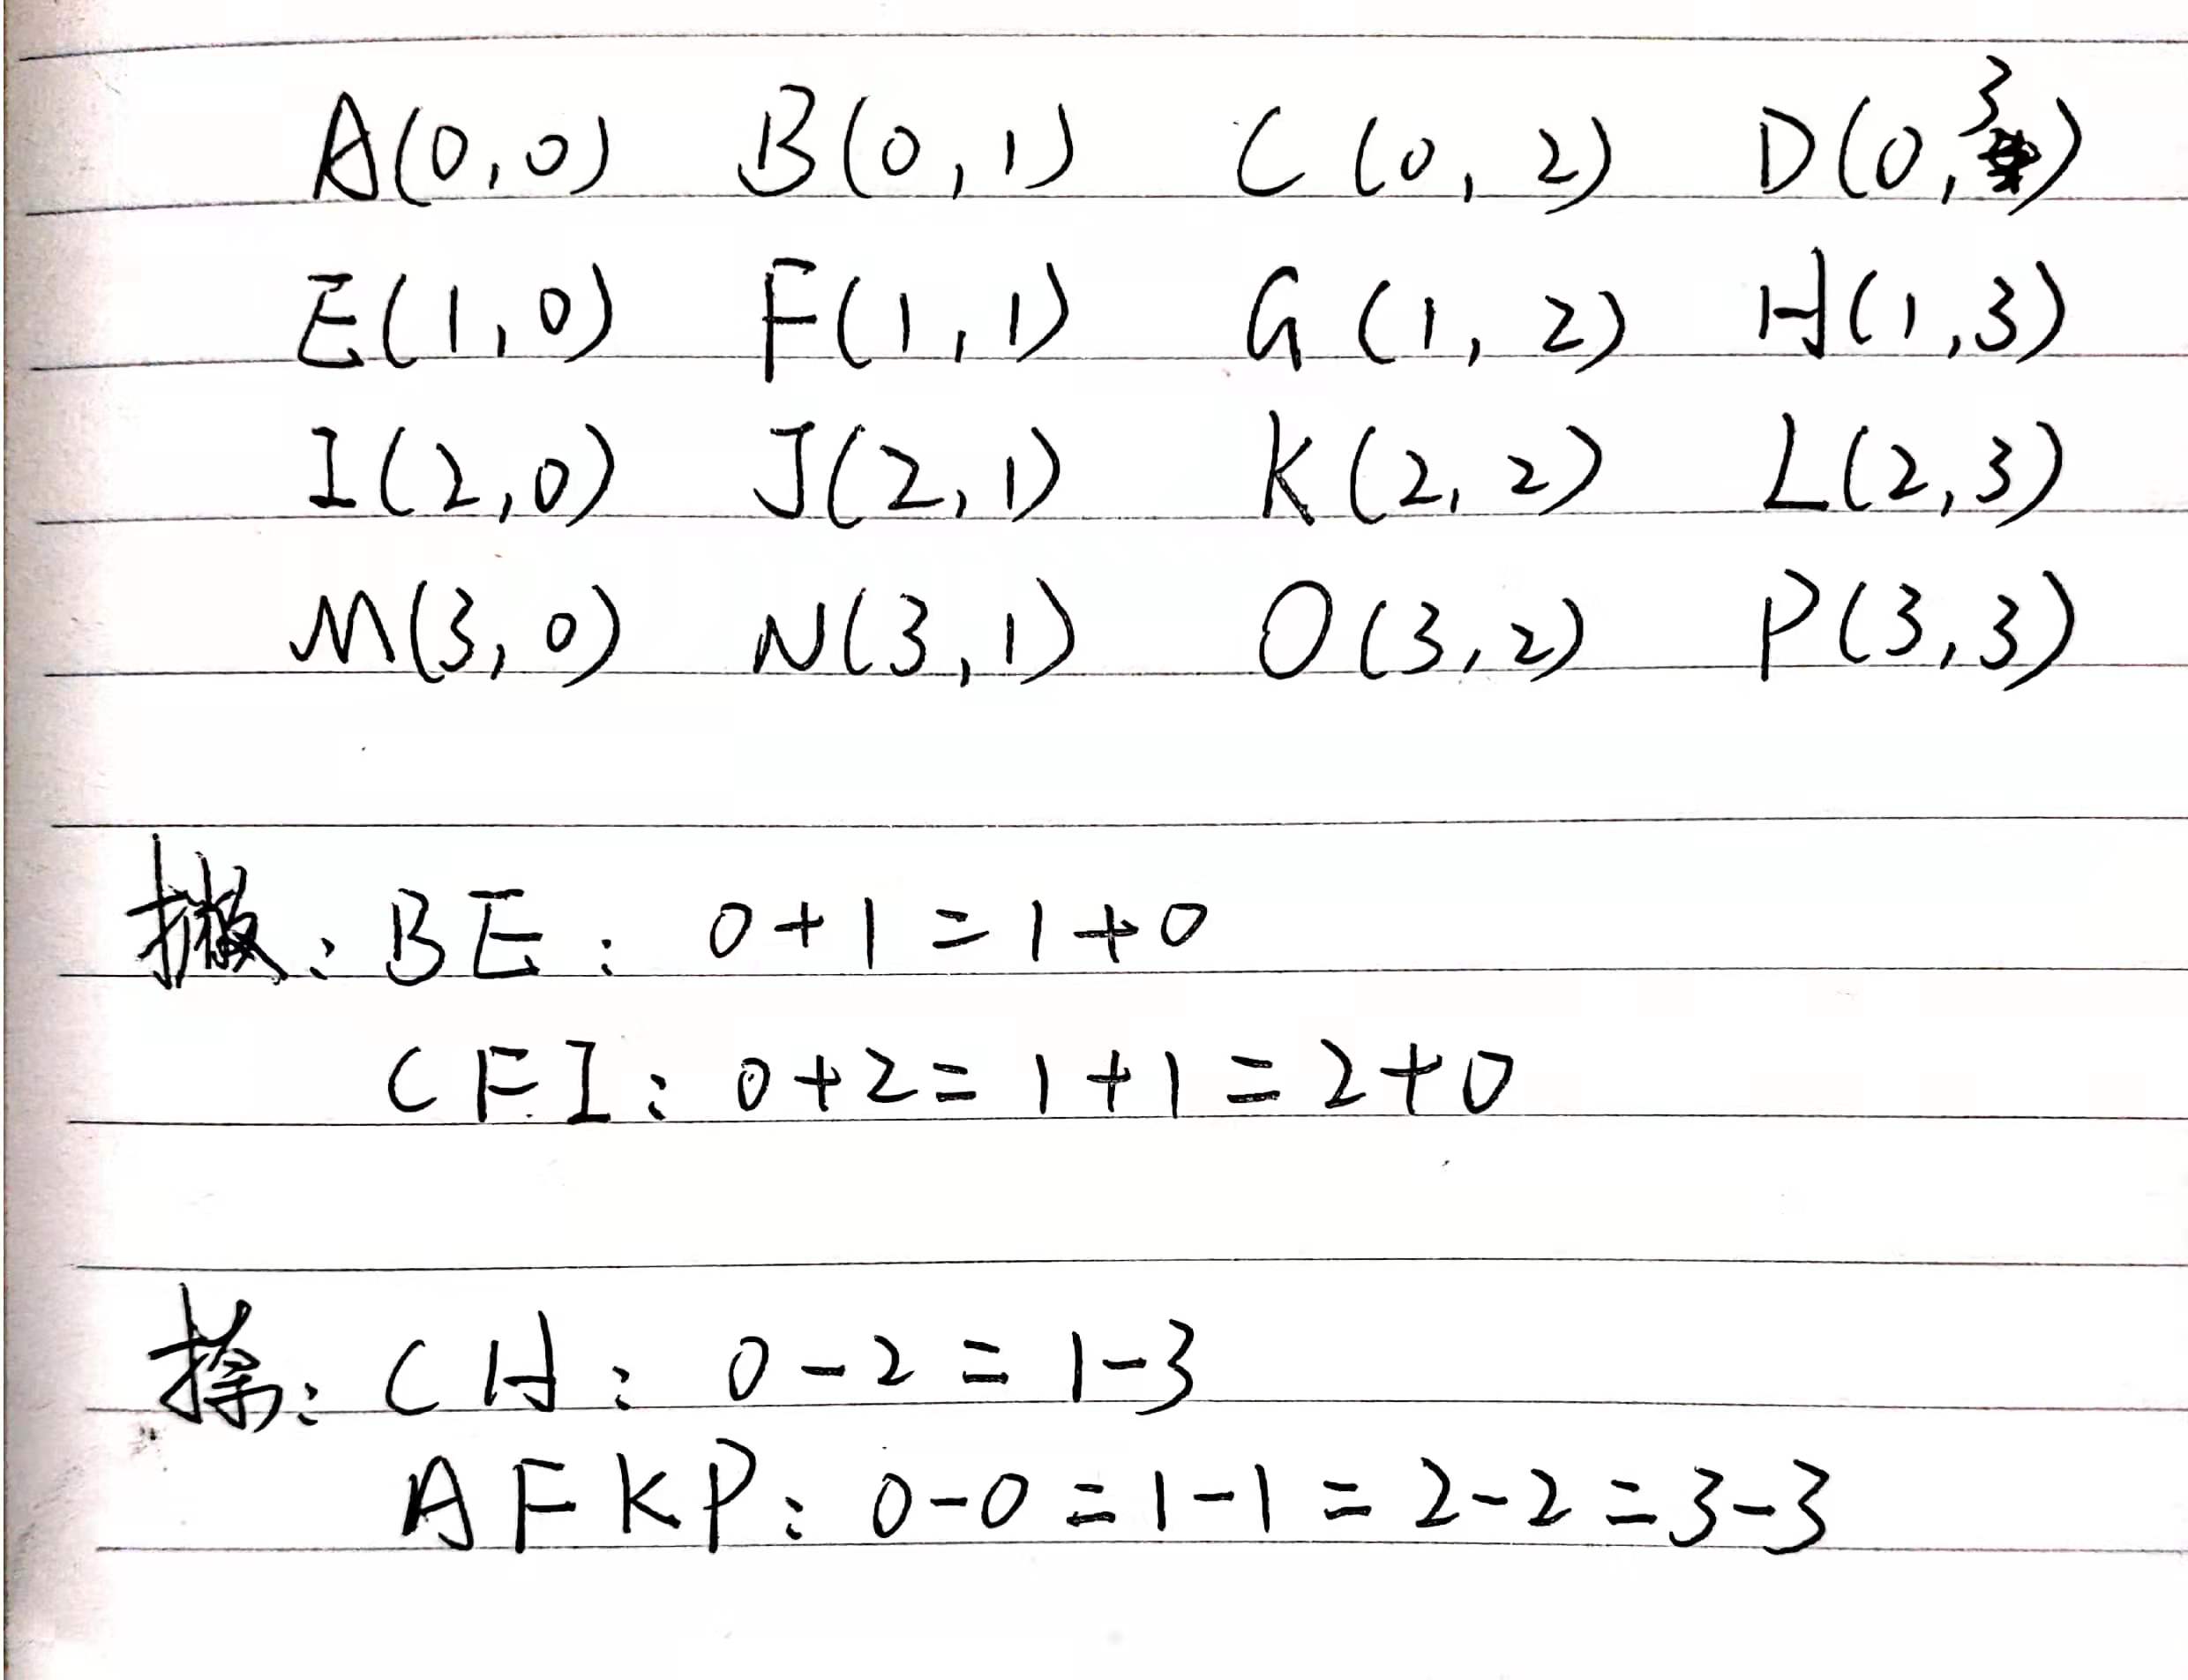 A(0,0) B(0,1) C(0,2) D(0,3)
E(1,0) F(1,1) G(1,2) H(1,3)
I(2,0) J(2,1) K(2,2) L(2,3)
M(3,0) N(3,1) O(3,2) P(3,3)
撇: BE: 0+1=1+0
CFI: 0+2=1+1=2+0
捺: CH: 0-2=1-3
AFKP: 0-0=1-1=2-2=3-3